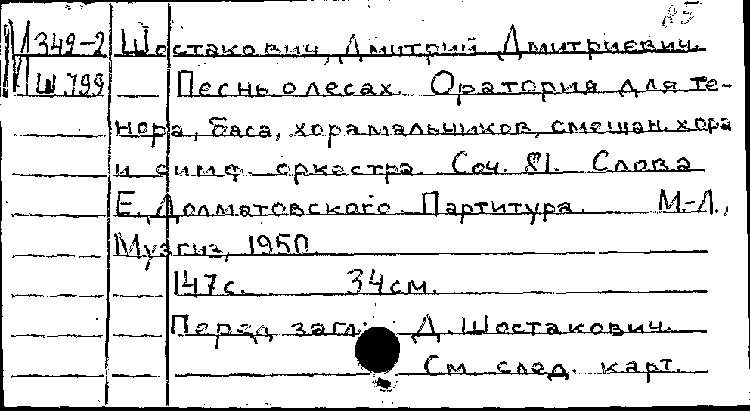 М349-2 Шостакович, Дмитрий Дмитриевич.
Ш.799 Песнь о лесах. Оратория для те-
нора, баса, хора мальчиков, смешан. хора
и симф. оркестра. Соч. 81. Слова
Е. Долматовского. Партитура. М.-Л.,
Музгиз, 1950.
147 с. 34 см.
Перед загл.: Д. Шостакович.
См. след. карт.